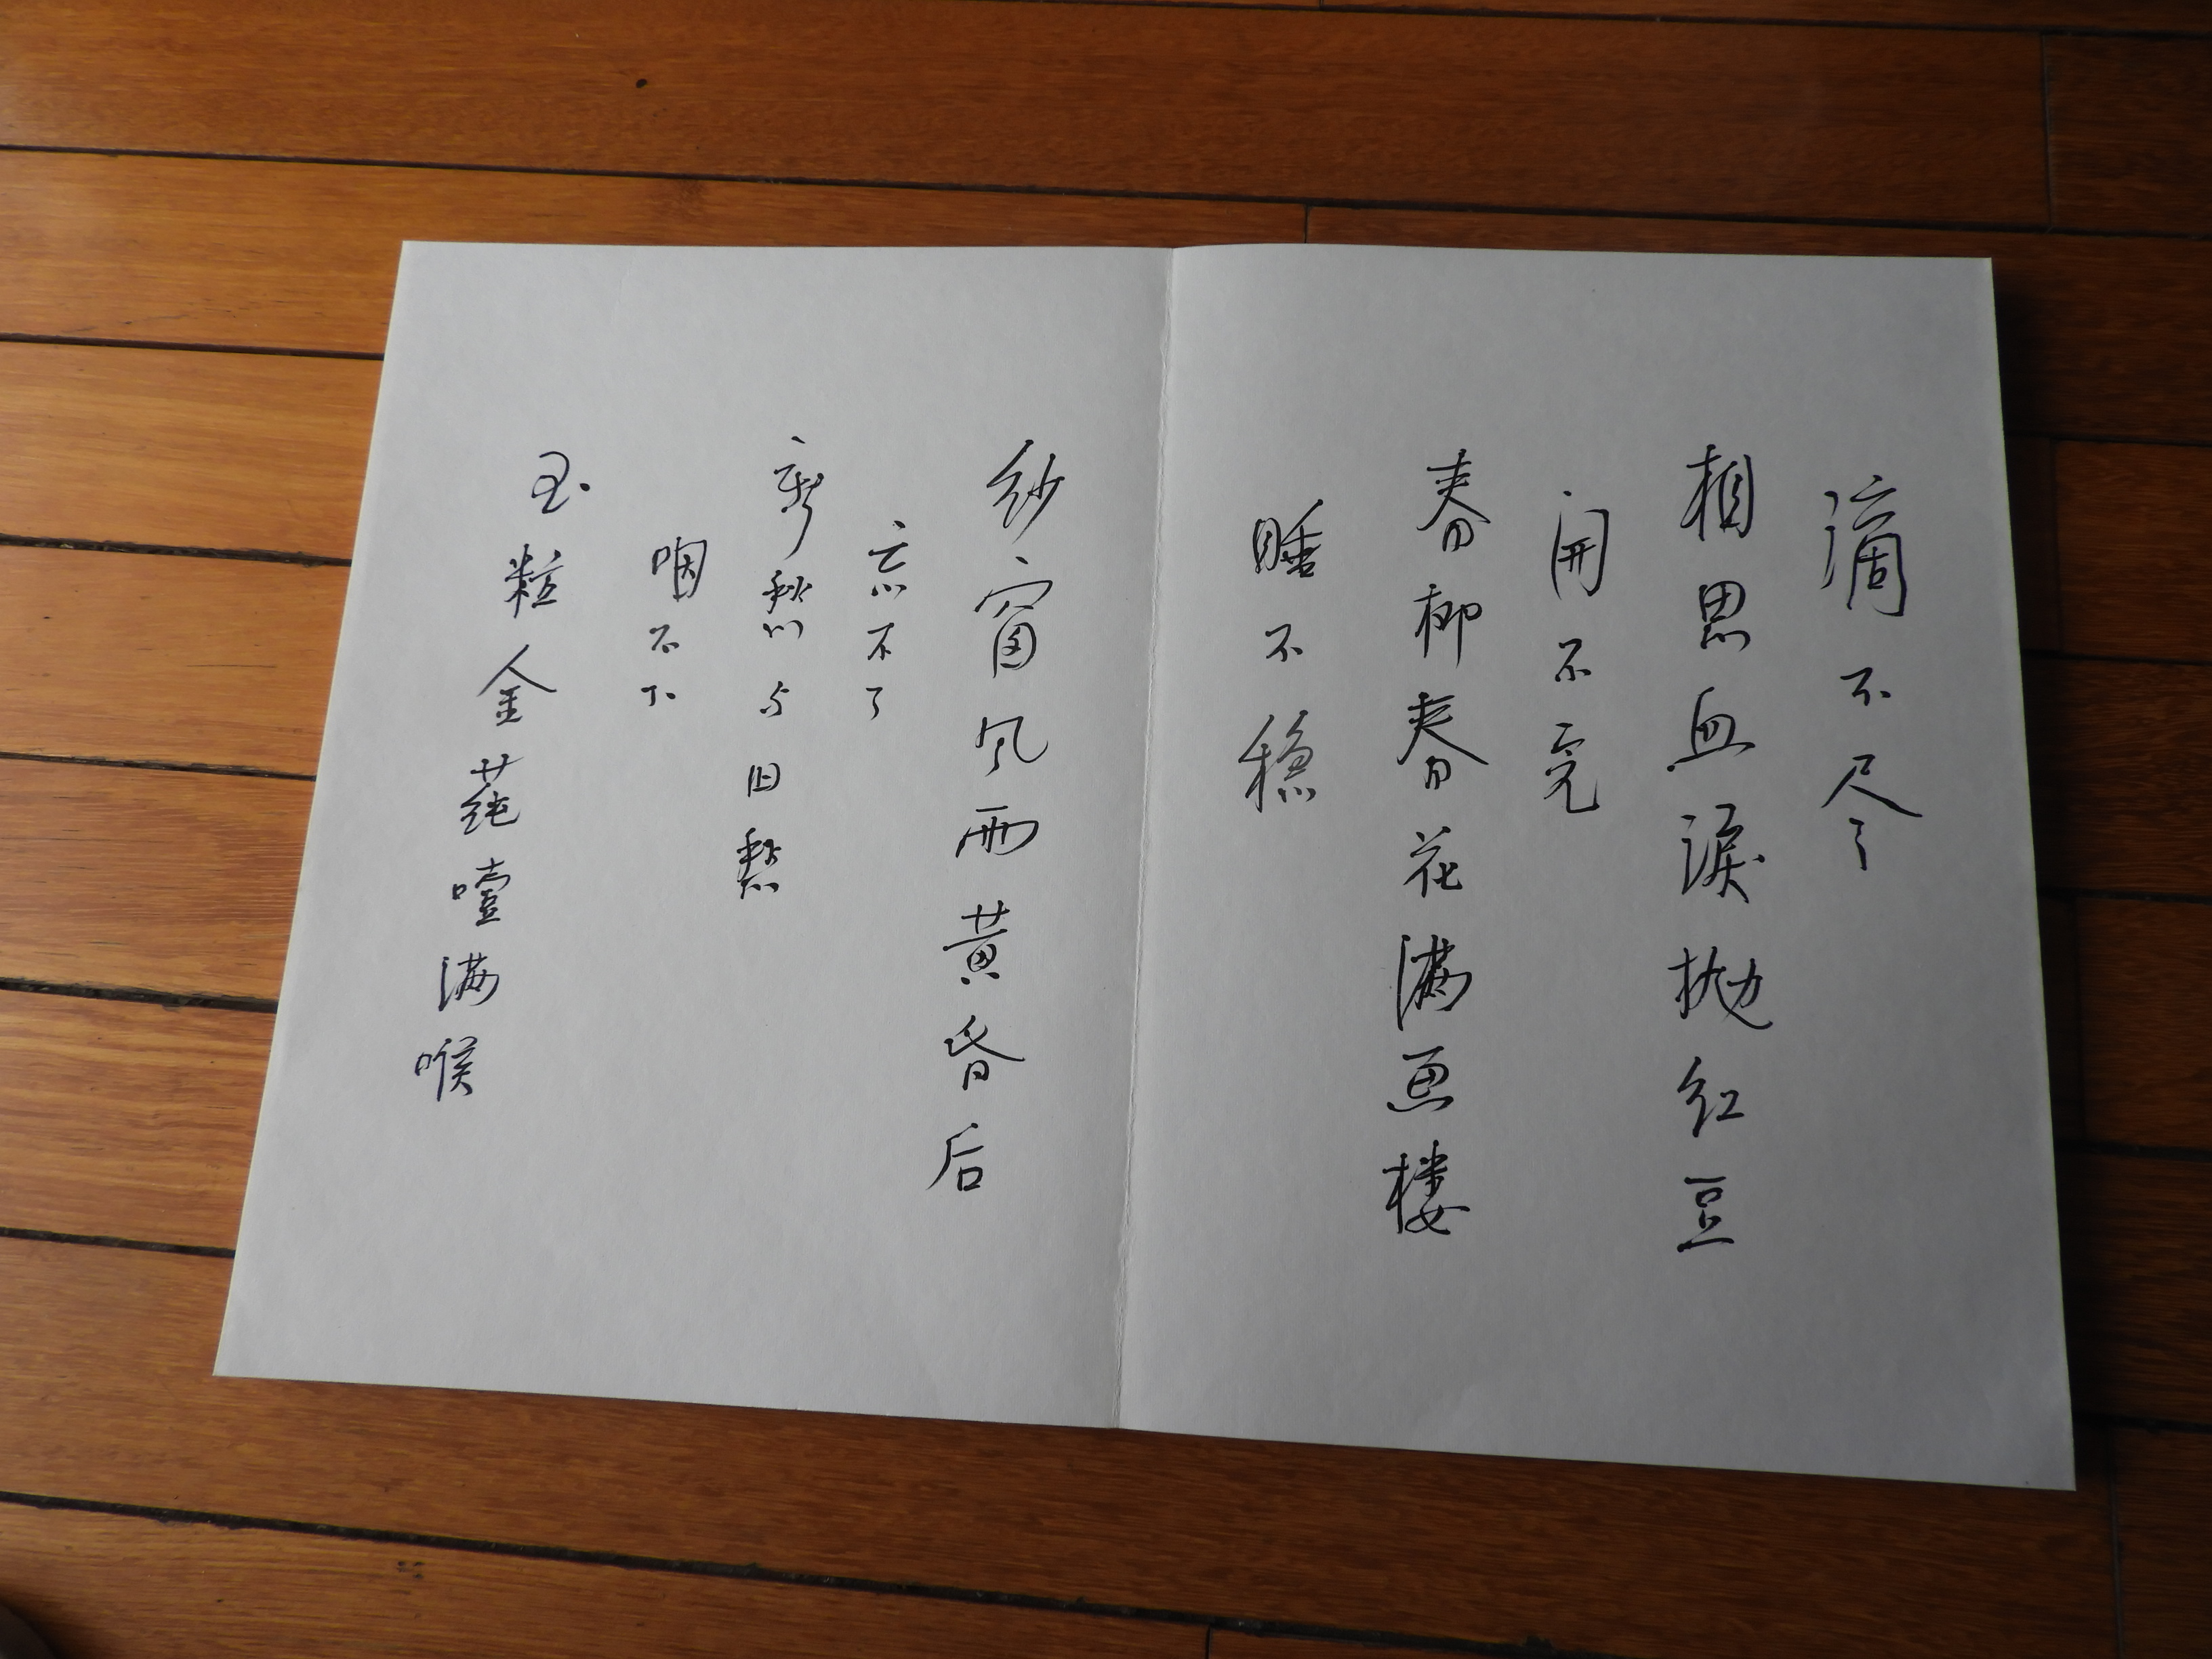 滴不尽
相思血淚抛红豆
开不完
春柳春花满画楼
睡不稳
纱窗风雨黄昏后
忘不了
新愁与旧愁
咽不下
玉粒金莼噎满喉